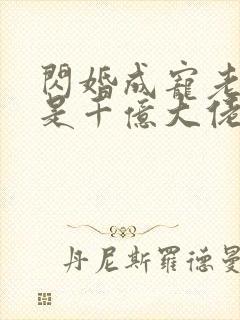 閃婚成寵老
是千億大佬
丹尼斯羅德曼